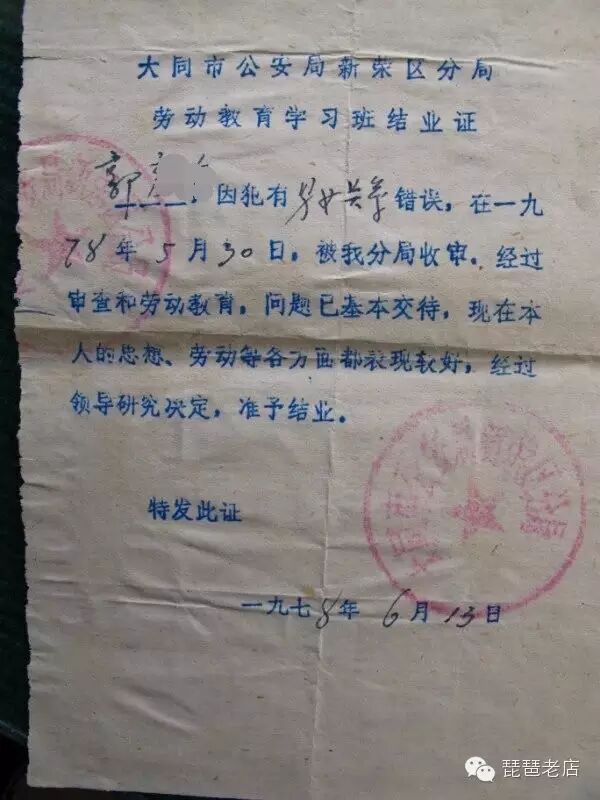 大同市公安局新荣区分局
劳动教育学习班结业证
郭 因犯有男女关系错误，在一九
78年5月30日，被我分局收审。经过
审查和劳动教育，问题已基本交待，现在本
人的思想、劳动等各方面都表现较好，经过
领导研究决定，准予结业。
特发此证
大同市公安局新荣区分局
一九七8年6月13日
琵琶老店